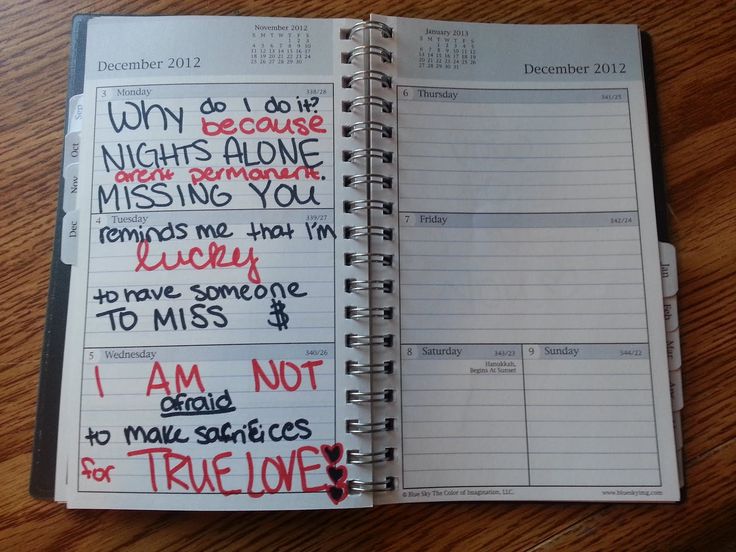 November 2012
S M T W T F S
1 2 3
4 5 6 7 8 9 10
11 12 13 14 15 16 17
18 19 20 21 22 23 24
25 26 27 28 29 30
December 2012
3 Monday 338/28
WHY do I do it?
because
NIGHTS ALONE
aren't permanent.
MISSING YOU
4 Tuesday 339/27
reminds me that I'm
lucky
to have someone
TO MISS $
5 Wednesday 340/26
I AM NOT
afraid
to make sacrifices
for TRUE LOVE
Sep
Oct
Nov
Dec
January 2013
S M T W T F S
1 2 3 4 5
6 7 8 9 10 11 12
13 14 15 16 17 18 19
20 21 22 23 24 25 26
27 28 29 30 31
December 2012
6 Thursday 341/25
7 Friday 342/24
8 Saturday 343/23
Hanukkah,
Begins At Sunset
9 Sunday 344/22
© Blue Sky The Color of Imagination, LLC.
www.blueskyimg.com
Jan
Feb
Mar